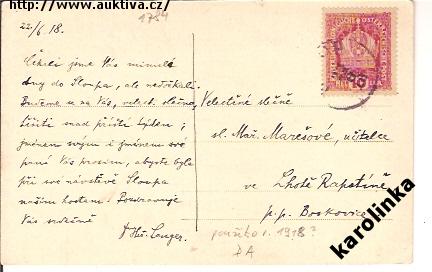 http://www.auktiva.cz/
1784
22/6 18.
Čekali jsme Vás minulé
dny do Sloupa, ale nedočkali.
Budeme u na Vás, velect. slečno,
těšiti snad příští týden;
jménem svým i jménem své
paní Vás prosím, abyste byla
při své návštěvě Sloupa
naším hostem. Pozdravuje
Vás srdečně
Langer.
Velectěné slečně
sl. Mař. Marešové, učitelce
ve Lhotě Rapotině
p.p. Boskovice
použito r. 1918?
DA
karolinka